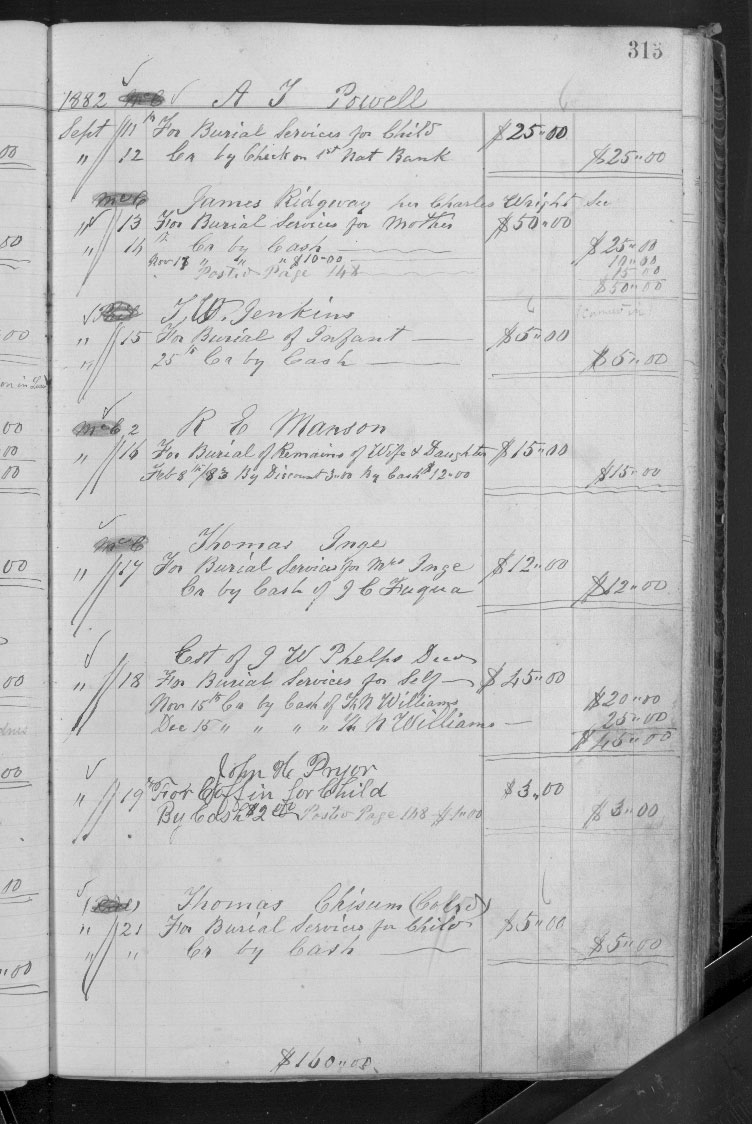 315
1882 A T Powell
Sept 11th For Burial Services for Child $25.00
" 12 Cr by Check on 1st Nat Bank $25.00
McC James Ridgway per Charles Wright Sec
" 13 For Burial Services for Mother $50.00
" 14th Cr by Cash $25.00
Nov 17 " " " $10.00 10.00
Posted Page 148 15.00
$50.00
T. W. Jenkins
" 15 For Burial of Infant $5.00
" 25th Cr by Cash $5.00
McC 2 R E Manson
" 16 For Burial of Remains of Wife & Daughter $15.00
Feb 8th/83 By Discount 3.00 By Cash $12.00 $15.00
McC Thomas Inge
" 17 For Burial Services for Mrs Inge $12.00
Cr by Cash of J C Fuqua $12.00
Est of J W Phelps Decd
" 18 For Burial Services for Self $45.00
Nov 15th Cr by Cash of Th N Williams $20.00
Dec 15 " " " " Th N Williams 25.00
$45.00
John H Pryor
" 19th For Coffin for Child $3.00
By Cash $2.00 Posted Page 148 $1.00 $3.00
Thomas Chisum (Cold)
" 21 For Burial Services for Child $5.00
" " Cr by Cash $5.00
$160.00
00
80
00
00
00
00
00
00
00
10
00